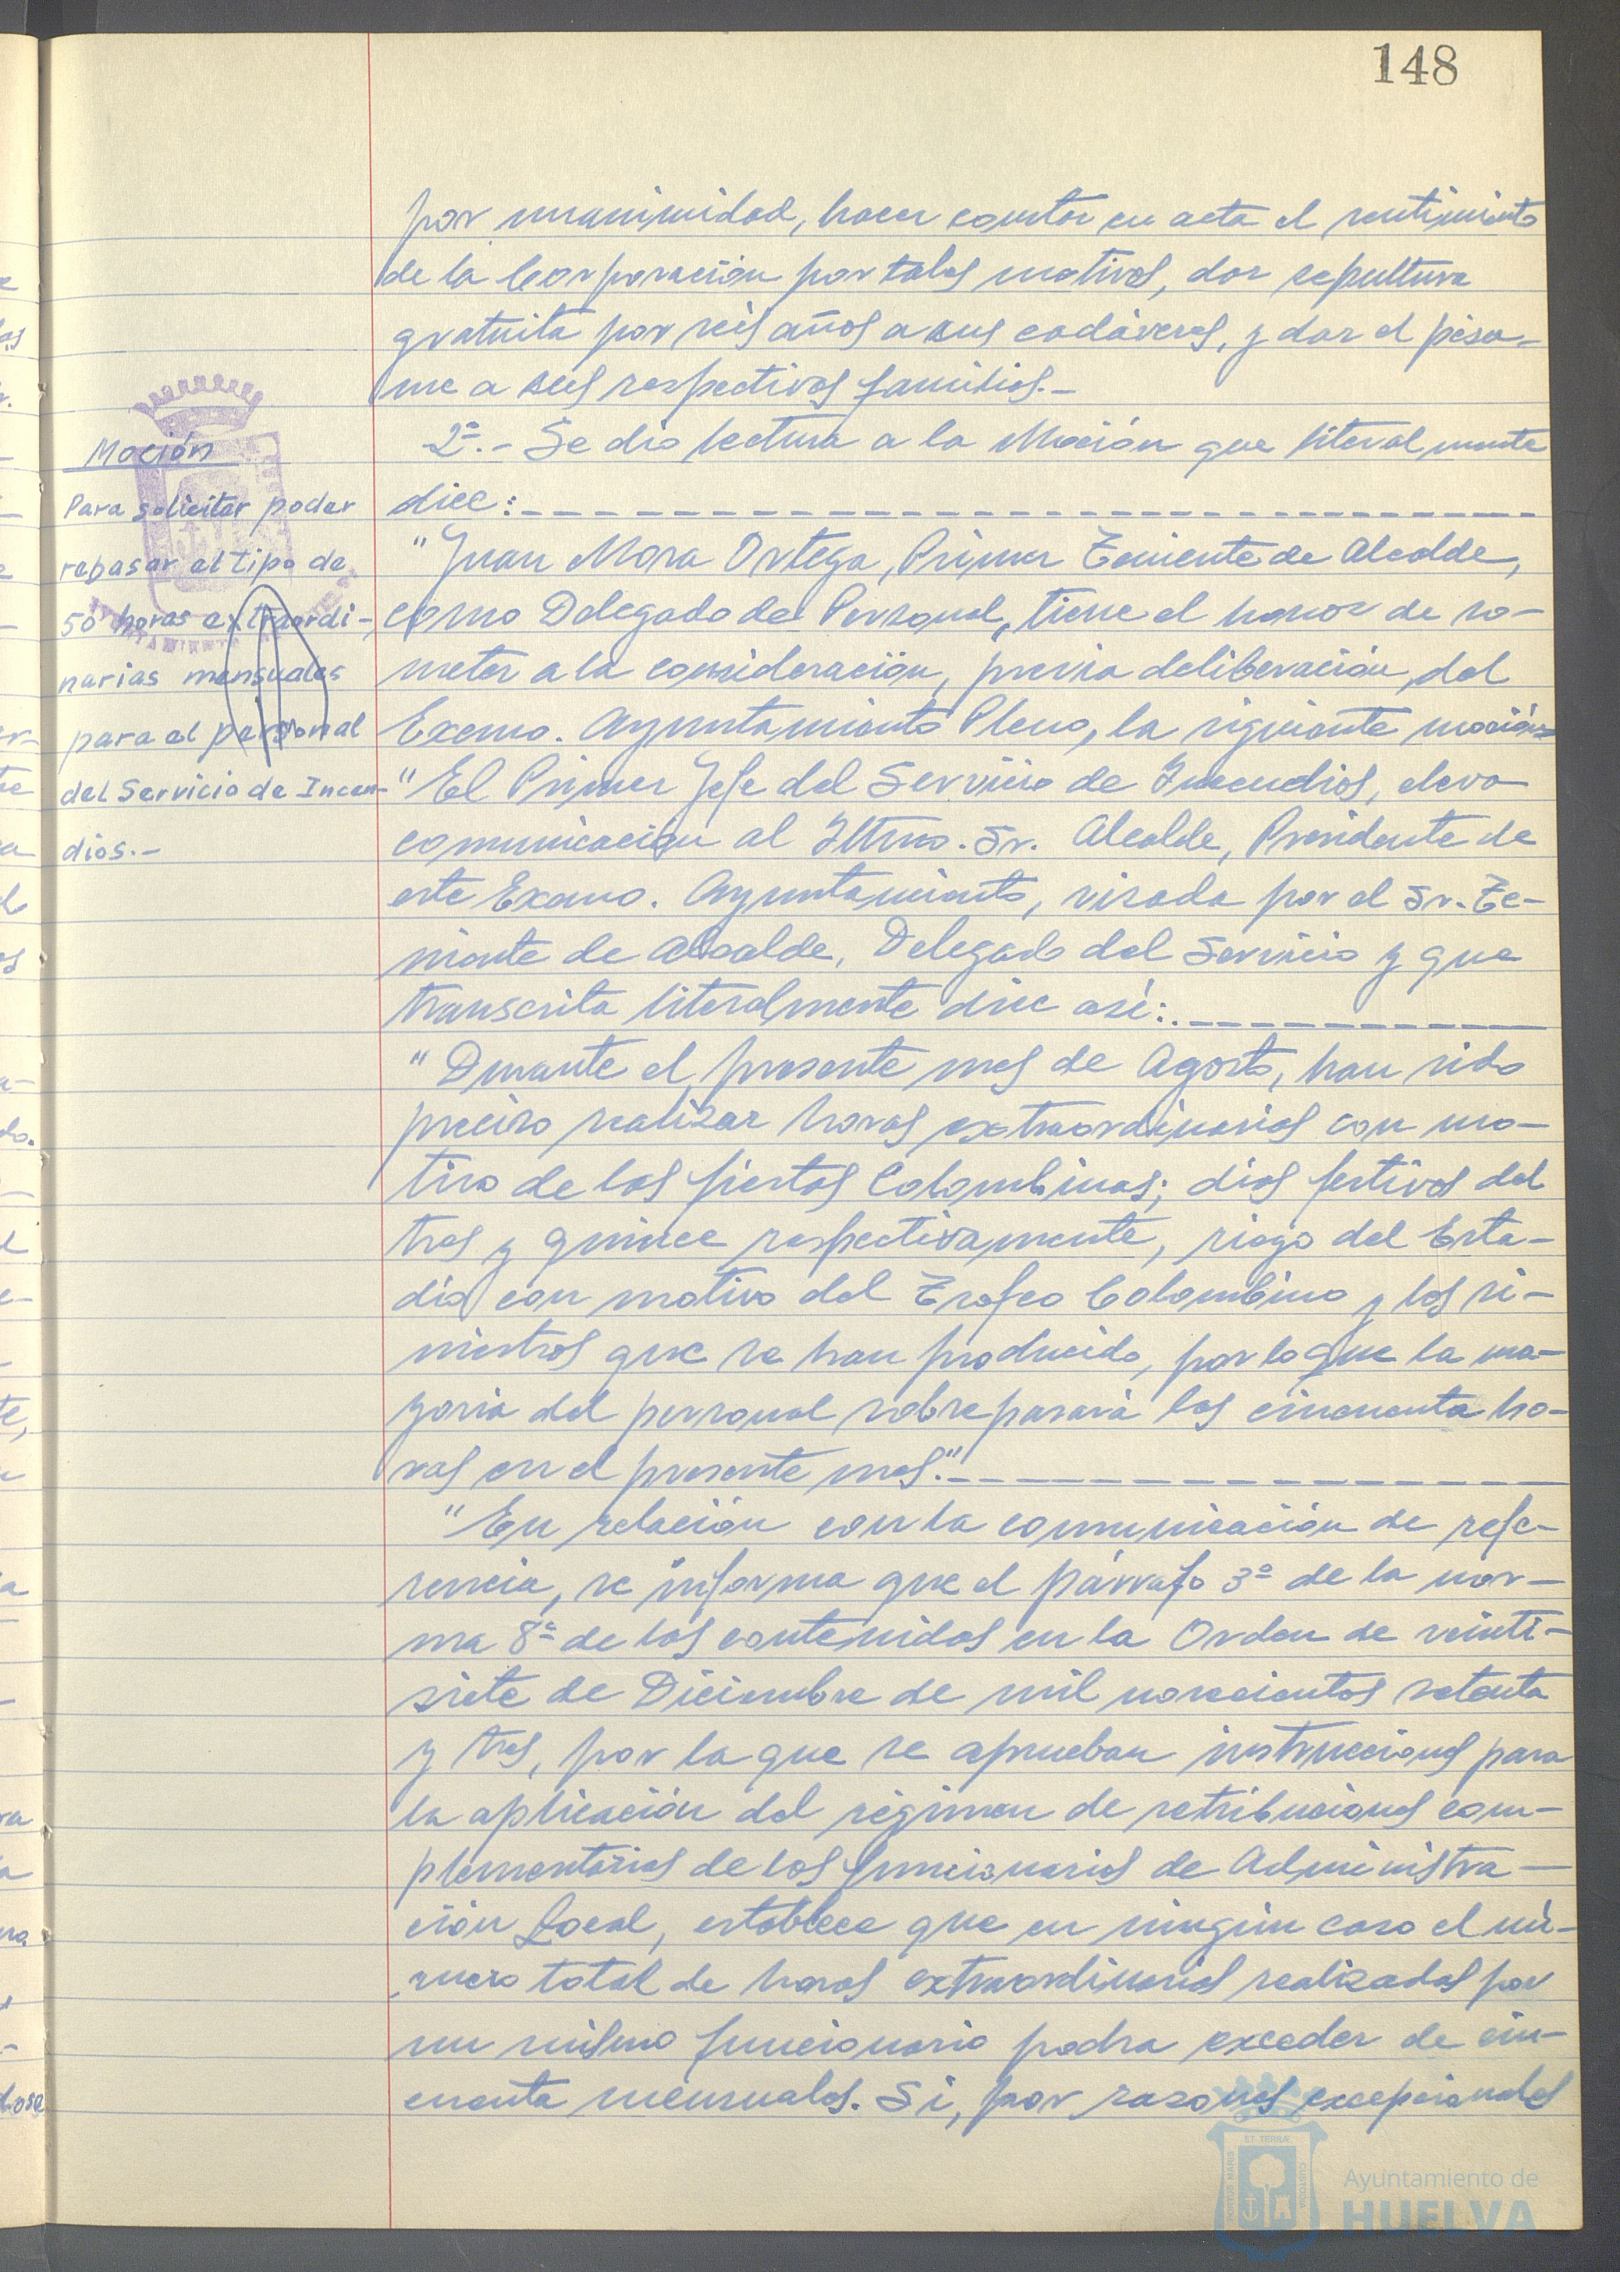 148
por unanimidad, hacer constar en acta el sentimiento
de la Corporación por tales motivos, dar sepultura
gratuita por seis años a sus cadáveres, y dar el pésa-
me a sus respectivas familias.-
Moción
Para solicitar poder
rebasar el tipo de
50 horas extraordi-
narias mensuales
para el personal
del Servicio de Incen-
dios.-
2º.- Se dio lectura a la Moción que literalmente
dice:
"Juan Mora Ortega, Primer Teniente de Alcalde,
como Delegado de Personal, tiene el honor de so-
meter a la consideración, previa deliberación, del
Excmo. Ayuntamiento Pleno, la siguiente moción:
"El Primer Jefe del Servicio de Incendios, eleva
comunicación al Iltmo. Sr. Alcalde, Presidente de
este Excmo. Ayuntamiento, visada por el Sr. Te-
niente de Alcalde, Delegado del Servicio y que
transcrita literalmente dice así:
"Durante el presente mes de Agosto, han sido
preciso realizar horas extraordinarias con mo-
tivo de las fiestas Colombinas; días festivos del
tres y quince respectivamente, riego del Esta-
dio con motivo del Trofeo Colombino y los si-
niestros que se han producido, por lo que la ma-
yoria del personal sobrepasará las cincuenta ho-
ras en el presente mes."
"En relación con la comunicación de refe-
rencia, se informa que el párrafo 3º de la nor-
ma 8ª de las contenidas en la Orden de veinti-
siete de Diciembre de mil novecientos setenta
y tres, por la que se aprueban instrucciones para
la aplicación del régimen de retribuciones com-
plementarias de los funcionarios de Administra-
ción Local, establece que en ningún caso el nú-
mero total de horas extraordinarias realizadas por
un mismo funcionario podrá exceder de cin-
cuenta mensuales. Si, por razones excepcionales
Ayuntamiento de
HUELVA